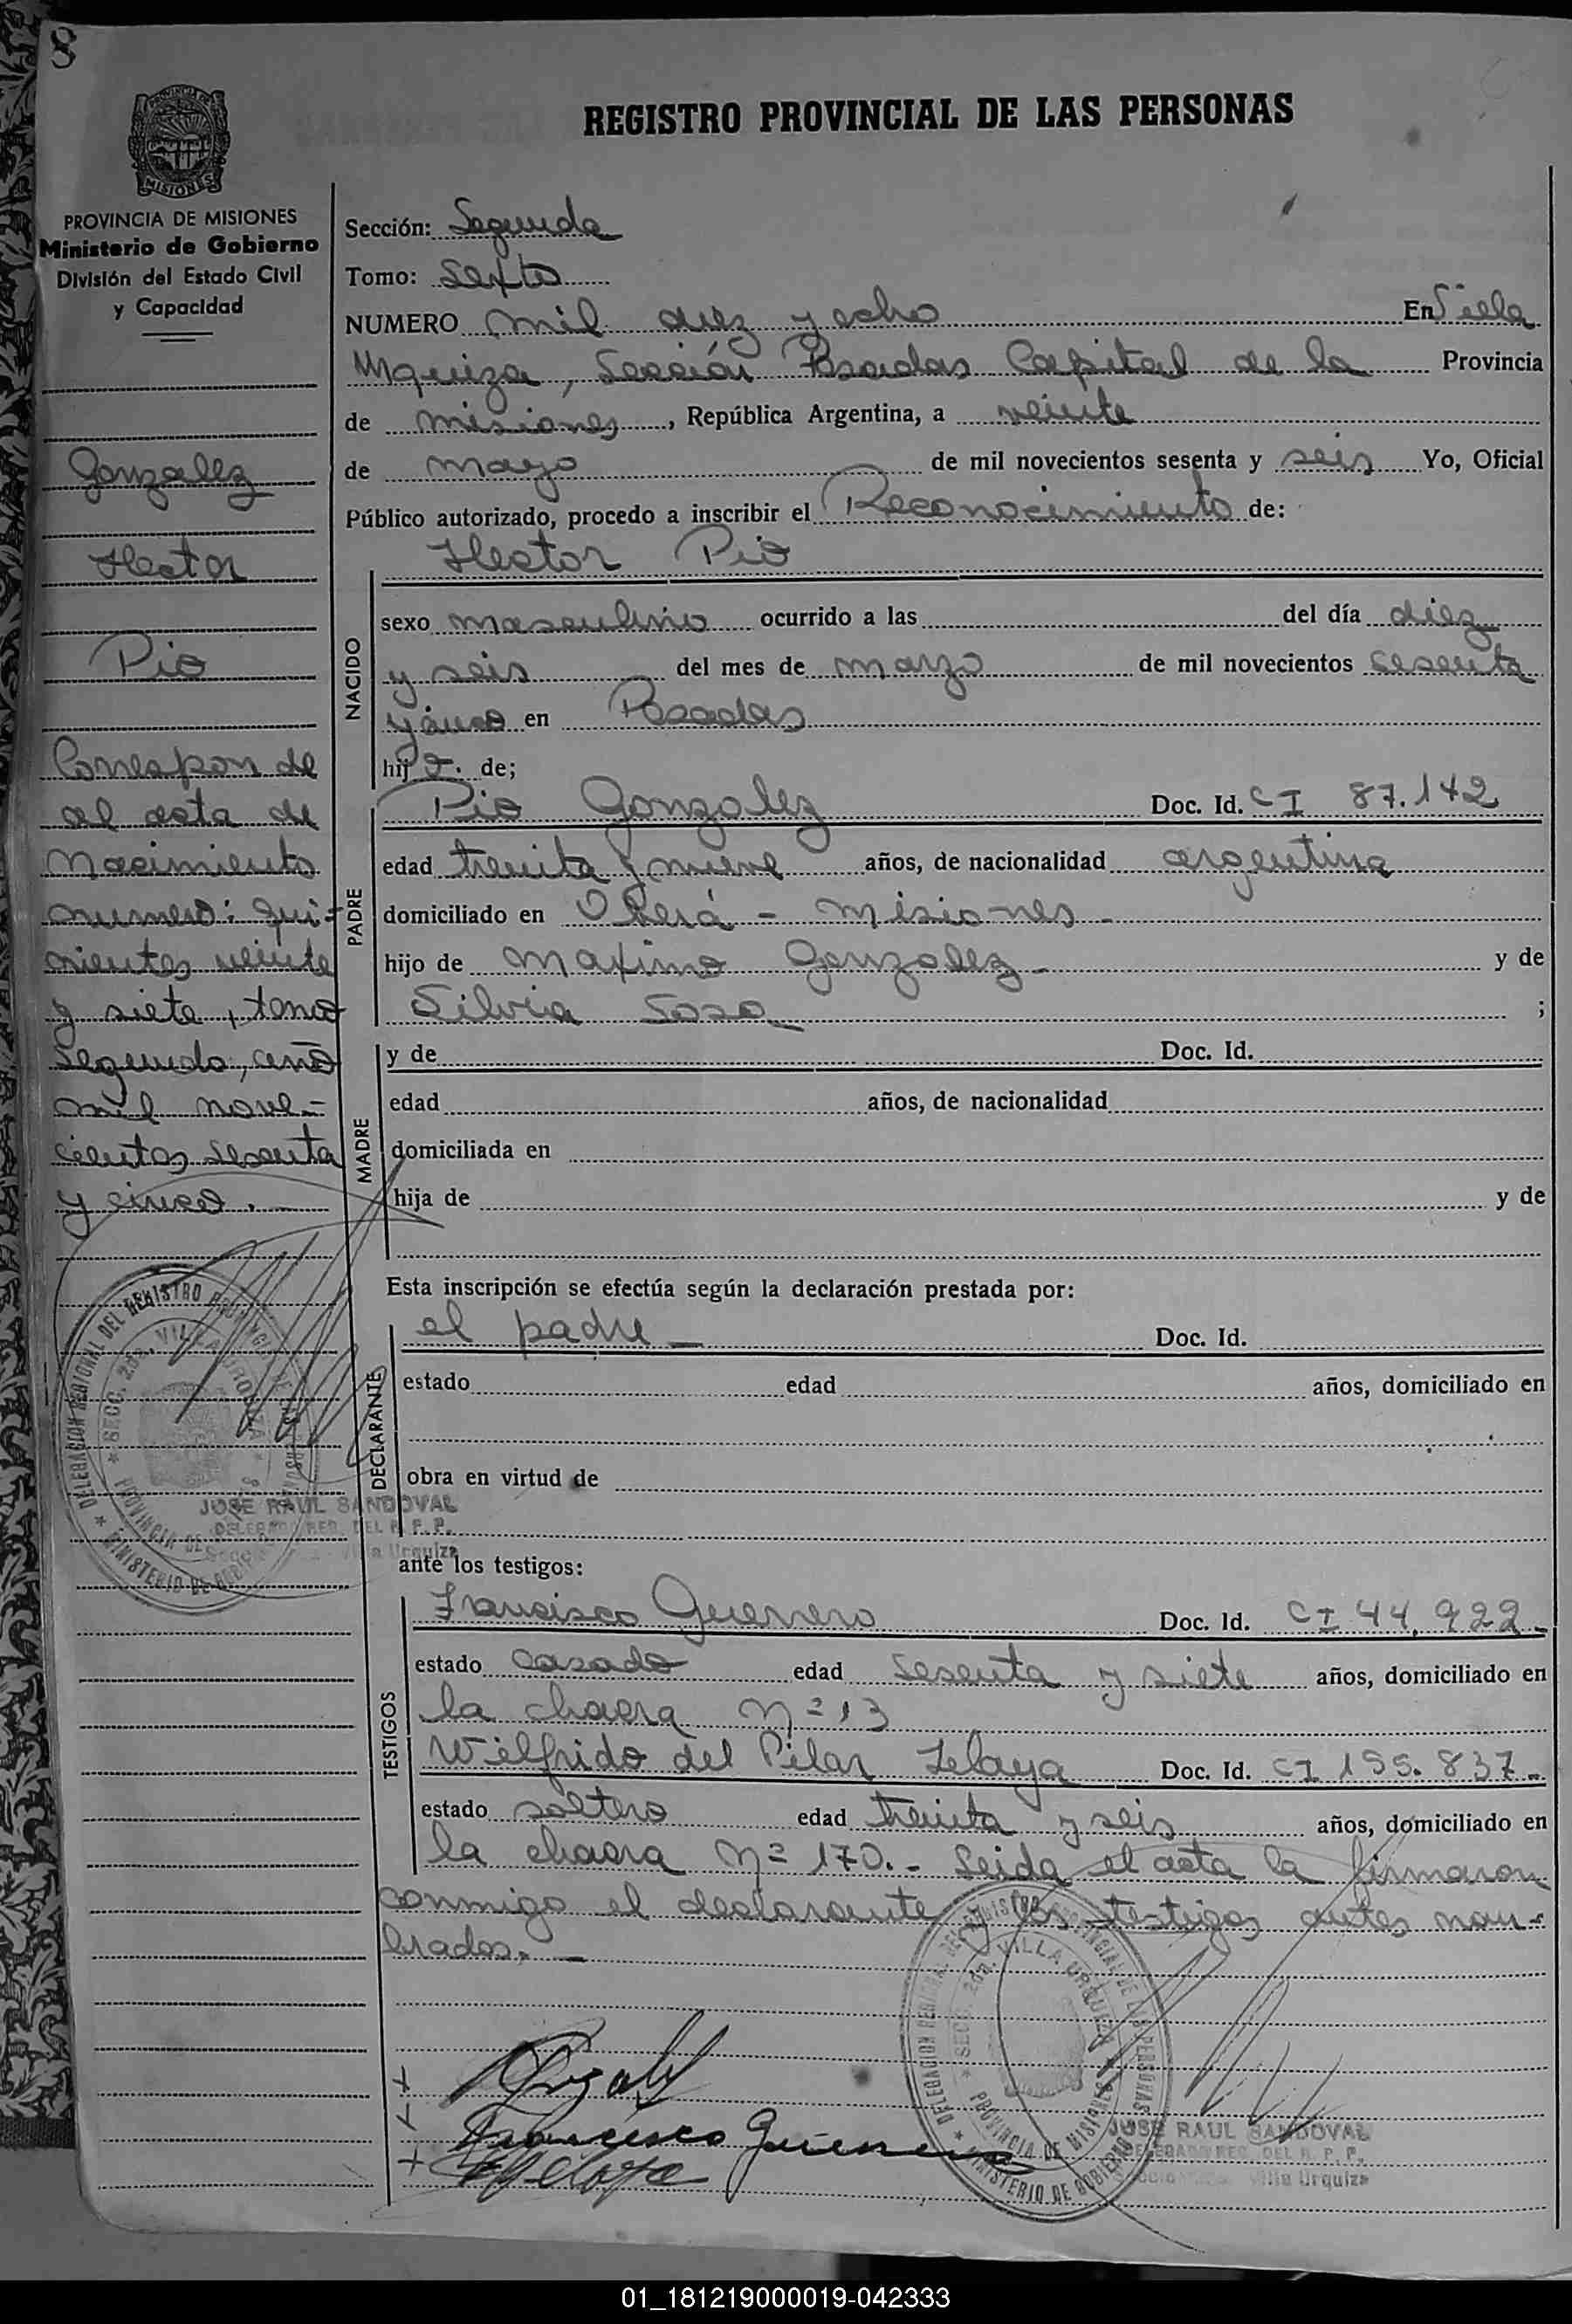 8
REGISTRO PROVINCIAL DE LAS PERSONAS
PROVINCIA DE MISIONES
MISIONES
PROVINCIA DE MISIONES
Ministerio de Gobierno
División del Estado Civil
y Capacidad
Gonzalez
Hector
Pio
Correspon de
al acta de
Nacimiento
numero: qui-
nientos veinte
y siete, tomo
segundo, año
mil nove-
cientos sesenta
y cinco.
DELEGACION REGIONAL DEL REGISTRO PROVINCIAL DE LAS PERSONAS
SECC. 2da. VILLA URQUIZA
PROVINCIA DE MISIONES
MINISTERIO DE GOBIERNO
JOSE RAUL SANDOVAL
DELEGADO REG. DEL R. P. P.
Villa Urquiza
Sección: Segunda
Tomo: Sexto
NUMERO mil diez y ocho En Villa
Urquiza, Sección Posadas Capital de la Provincia
de misiones, República Argentina, a veinte
de mayo de mil novecientos sesenta y seis Yo, Oficial
Público autorizado, procedo a inscribir el Reconocimiento de:
Hector Pio
NACIDO
sexo masculino ocurrido a las del día diez
y seis del mes de marzo de mil novecientos sesenta
y cinco en Posadas
hijo. de;
PADRE
Pio Gonzalez Doc. Id. CI 87.142
edad treinta y nueve años, de nacionalidad argentina
domiciliado en Oberá - Misiones -
hijo de Maximo Gonzalez - y de
Silvia Sosa ;
MADRE
y de Doc. Id.
edad años, de nacionalidad
domiciliada en
hija de y de
Esta inscripción se efectúa según la declaración prestada por:
DECLARANTE
el padre - Doc. Id.
estado edad años, domiciliado en
obra en virtud de
ante los testigos:
TESTIGOS
Francisco Guerrero Doc. Id. CI 44.922-
estado casado edad sesenta y siete años, domiciliado en
la chacra Nº 13
Wilfrido del Pilar Zelaya Doc. Id. CI 195.837-
estado soltero edad treinta y seis años, domiciliado en
la chacra Nº 170.- Leida el acta la firmaron
conmigo el declarante y los testigos antes nom-
brados. -
Francisco Guerrero
DELEGACION REGIONAL DEL REGISTRO PROVINCIAL DE LAS PERSONAS
SECC. 2da. VILLA URQUIZA
PROVINCIA DE MISIONES
MINISTERIO DE GOBIERNO
JOSE RAUL SANDOVAL
DELEGADO REG. DEL R. P. P.
Villa Urquiza
01_181219000019-042333